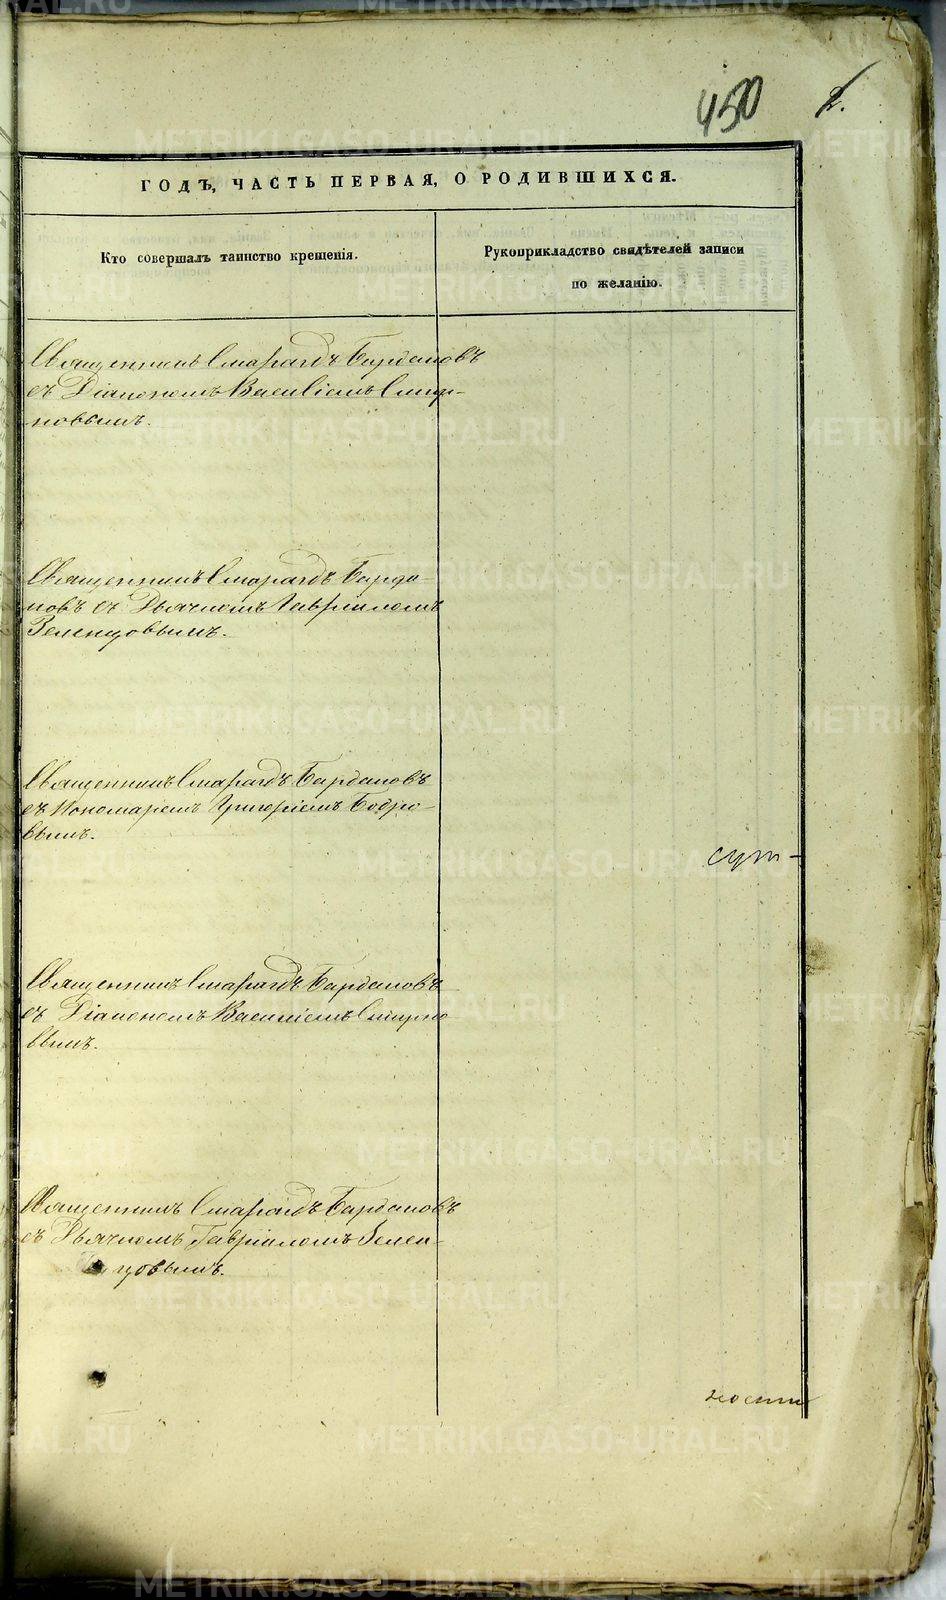 450 2.
ГОДЪ, ЧАСТЬ ПЕРВАЯ, О РОДИВШИХСЯ.
Кто совершалъ таинство крещенія.
Рукоприкладство свидѣтелей записи
по желанію.
Священникъ Смарагдъ Бардаковъ
съ Діакономъ Василіемъ Смир-
новымъ.
Священникъ Смарагдъ Барда-
ковъ съ Дьячкомъ Гавріиломъ
Зеленцовымъ.
Священникъ Смарагдъ Бардаковъ
съ Пономаремъ Григоріемъ Бобро-
вымъ.
сут-
Священникъ Смарагдъ Бардаковъ
съ Діакономъ Василіемъ Смирно
вымъ.
Священникъ Смарагдъ Бардаковъ
съ Дьячкомъ Гавріиломъ Зелен-
цовымъ.
METRIKI.GASO-URAL.RU